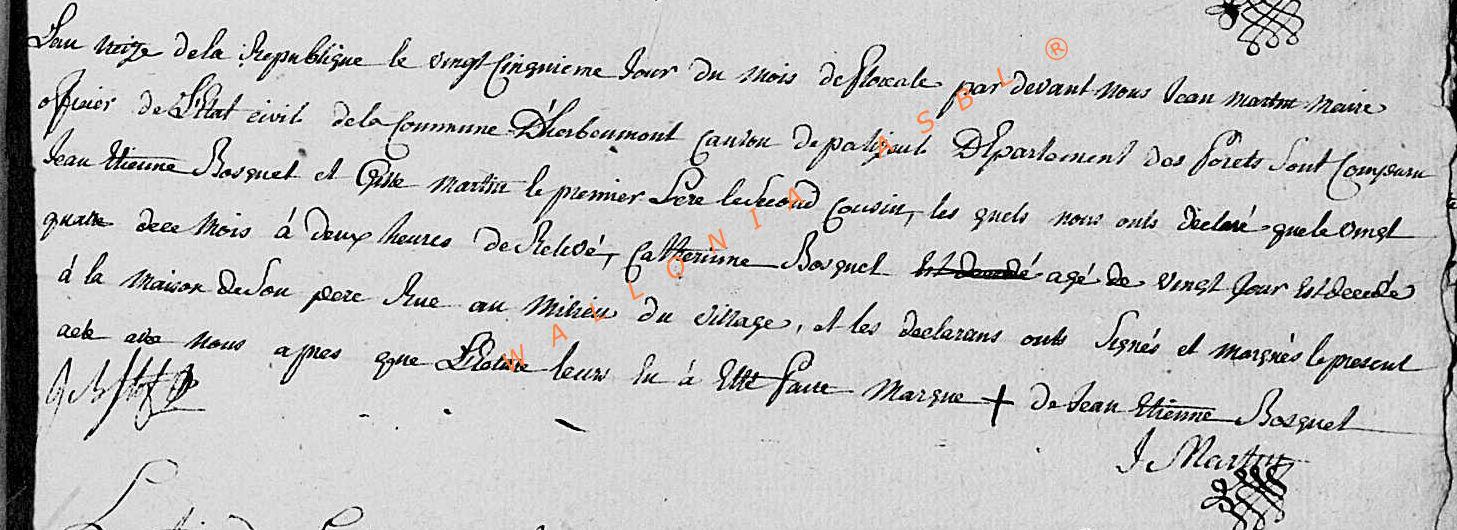 L'an treize de la Republique le vingt Cinquieme Jour du mois de floreale par devant nous Jean martin maire
officier de L'Etat civil de la Commune D'herbeumont Canton de paliseul Département des forets Sont Comparu
Jean Etienne Bosquet et Gille martin le premier Pere le Second Cousin, les quels nous onts déclaré que le vingt
quatre dece mois à deux heures de Relevé, Catherinne Bosquet est decedé agé de vingt Jour Est decedée
á la maison de Son pere Rue au milieu du village, et les declarans onts Signés et margués le present
acte avec nous apres que Lecture leurs en à Etté faitte Marque + de Jean Etienne Bosquet
J Martin
WALLONIA ASBL ®